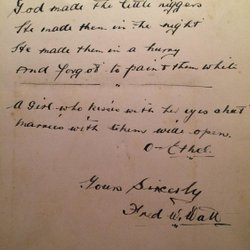 God made the little niggers
He made them in the night
He made them in a hurry
And forgot to paint them white
A girl who kisses with her eyes shut
marries with them wide open.
O-Ethel
Yours Sincerly
Fred W. Wall